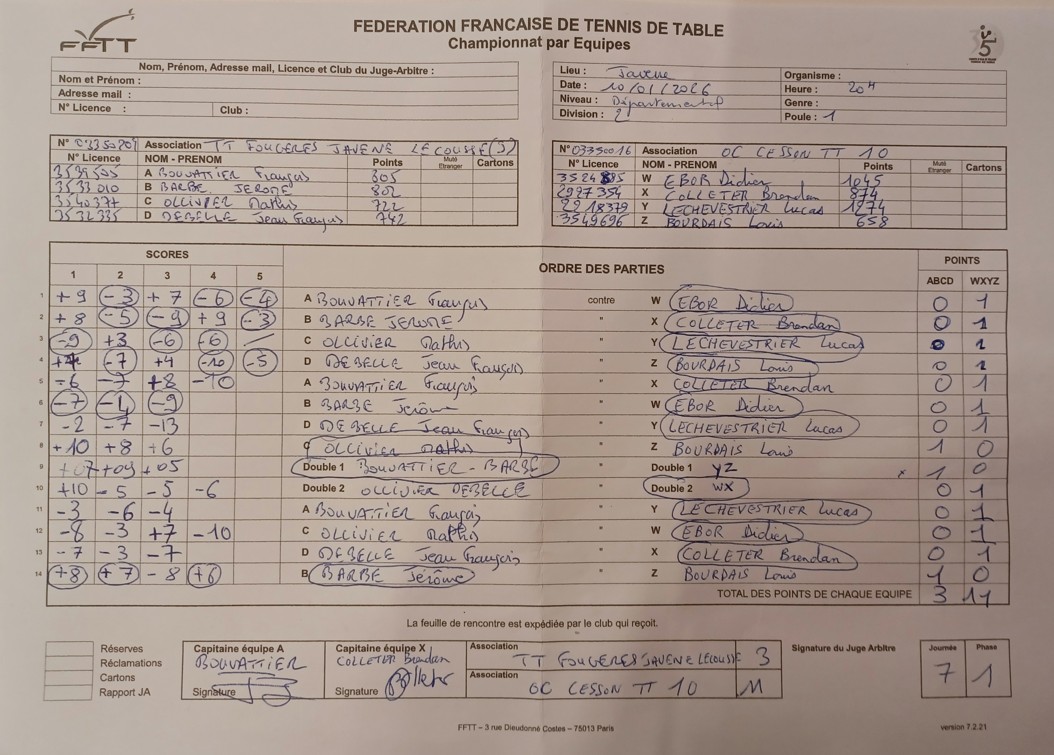 FFTT
FEDERATION FRANCAISE DE TENNIS DE TABLE
Championnat par Equipes
Nom, Prénom, Adresse mail, Licence et Club du Juge-Arbitre :
Nom et Prénom :
Adresse mail :
N° Licence : Club :
Lieu : Javene Organisme :
Date : 10/01/2026 Heure : 20H
Niveau : Départemental Genre :
Division : 2 Poule : 1
N° 03350809 Association TT FOUGERES JAVENE LECOUSSE (3)
N° Licence NOM - PRENOM Points Muté Etranger Cartons
3539505 A BOUVATTIER François 805
3533010 B BARBE JEROME 802
3540377 C OLLIVIER Mathis 722
3532335 D DEBELLE Jean François 742
N° 03350016 Association OC CESSON TT 10
N° Licence NOM - PRENOM Points Muté Etranger Cartons
3524895 W EBOR Didier 1045
2927354 X COLLETER Brendan 874
2218379 Y LECHEVESTRIER Lucas 1274
3549696 Z BOURDAIS Louis 658
SCORES ORDRE DES PARTIES POINTS
1 2 3 4 5 ABCD WXYZ
1 +9 -3 +7 -6 -4 A BOUVATTIER François contre W EBOR Didier 0 1
2 +8 -5 -9 +9 -3 B BARBE JEROME " X COLLETER Brendan 0 1
3 -9 +3 -6 -6 C OLLIVIER Mathis " Y LECHEVESTRIER Lucas 0 1
4 -7 +4 -10 -5 D DEBELLE Jean François " Z BOURDAIS Louis 0 1
5 -6 -7 +8 -10 A BOUVATTIER François " X COLLETER Brendan 0 1
6 -7 -4 -9 B BARBE Jérôme " W EBOR Didier 0 1
7 -2 -7 -13 D DEBELLE Jean François " Y LECHEVESTRIER Lucas 0 1
8 +10 +8 +6 C OLLIVIER Mathis " Z BOURDAIS Louis 1 0
9 +07 +09 +05 Double 1 BOUVATTIER - BARBE " Double 1 YZ x 1 0
10 +10 -5 -5 -6 Double 2 OLLIVIER DEBELLE " Double 2 WX 0 1
11 -3 -6 -4 A BOUVATTIER François " Y LECHEVESTRIER Lucas 0 1
12 -8 -3 +7 -10 C OLLIVIER Mathis " W EBOR Didier 0 1
13 -7 -3 -7 D DEBELLE Jean François " X COLLETER Brendan 0 1
14 +8 +7 -8 +6 B BARBE Jérôme " Z BOURDAIS Louis 1 0
TOTAL DES POINTS DE CHAQUE EQUIPE 3 11
La feuille de rencontre est expédiée par le club qui reçoit.
Réserves
Réclamations
Cartons
Rapport JA
Capitaine équipe A
BOUVATTIER
Signature
Capitaine équipe X
COLLETER Brendan
Signature
Association
TT FOUGERES JAVENE LECOUSSE 3
Association
OC CESSON TT 10 11
Signature du Juge Arbitre
Journée Phase
7 1
FFTT – 3 rue Dieudonné Costes – 75013 Paris
version 7.2.21